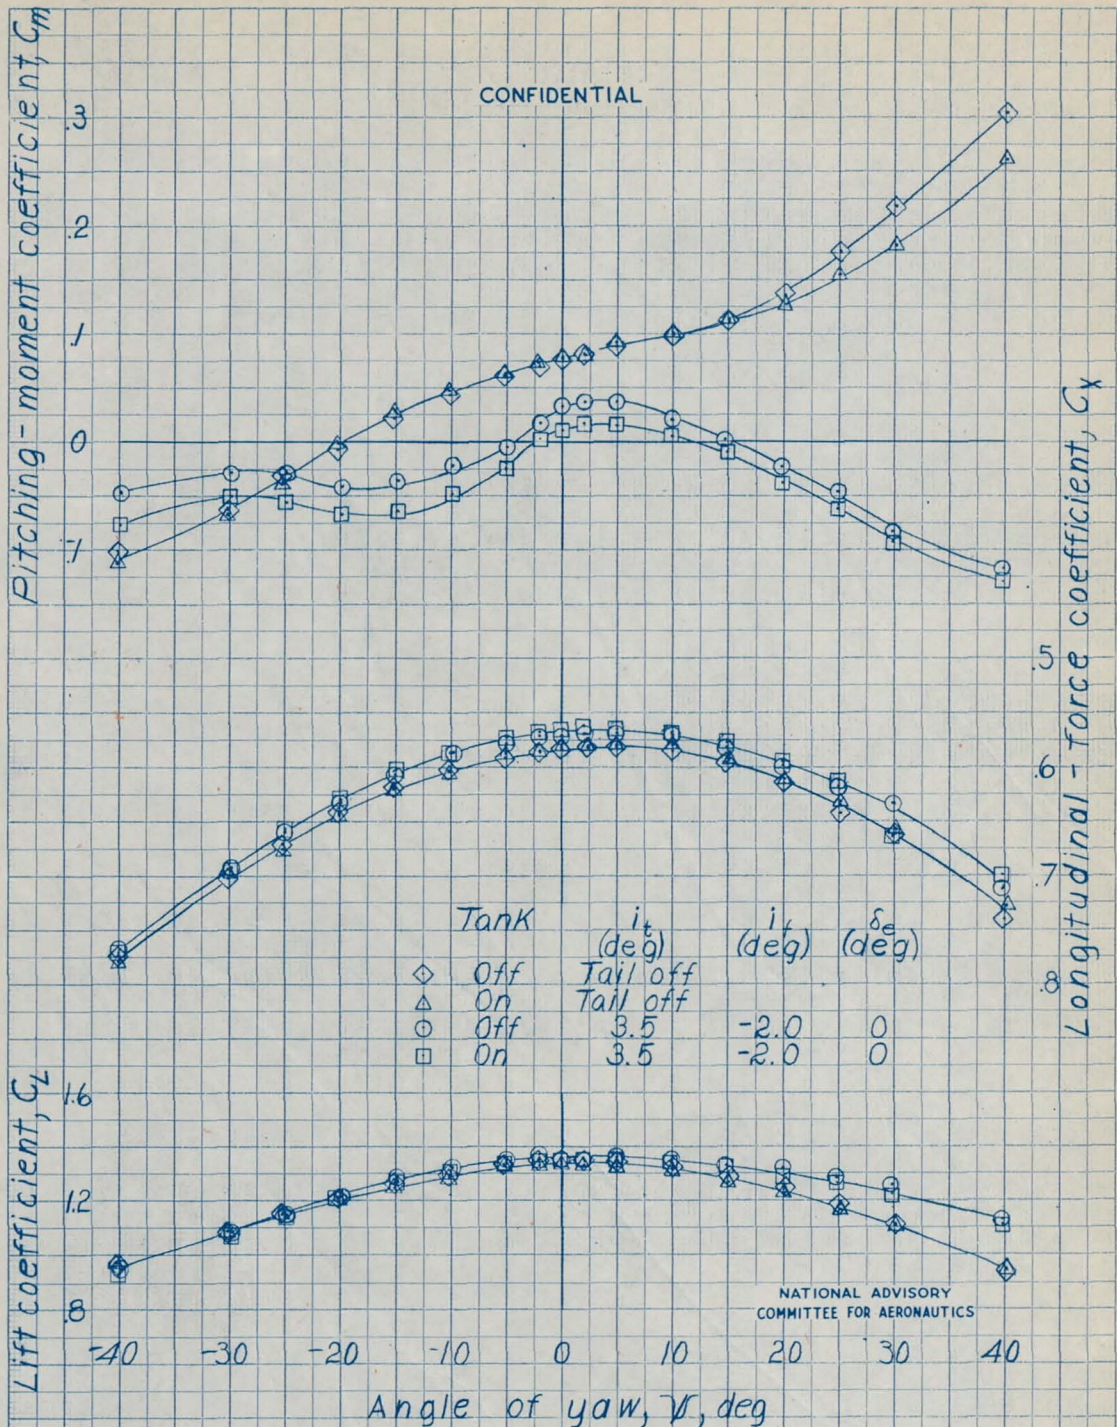 CONFIDENTIAL
Pitching-moment coefficient, Cm
.3
.2
.1
0
-.1
Longitudinal-force coefficient, CX
.5
.6
.7
.8
Tank it (deg) it (deg) δe (deg)
◇ Off Tail off
△ On Tail off
○ Off 3.5 -2.0 0
□ On 3.5 -2.0 0
Lift coefficient, CL
1.6
1.2
.8
NATIONAL ADVISORY
COMMITTEE FOR AERONAUTICS
-40 -30 -20 -10 0 10 20 30 40
Angle of yaw, ψ, deg